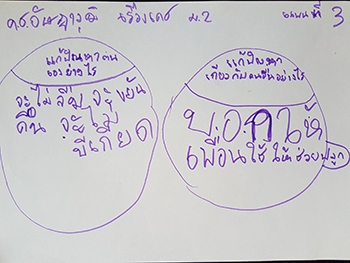 ด.ช.อันดามุติ เรืองเดช ม.2
แผนที่ 3
แก้ปัญหาตน
เองอย่างไร
จะไม่ลืม จะขยัน
ตื่น จะไม่
ขี้เกียด
แก้ปัญหา
เกี่ยวกับคนอื่นอย่างไร
บอกให้
เพื่อนใช้ให้ช่วยปลูก